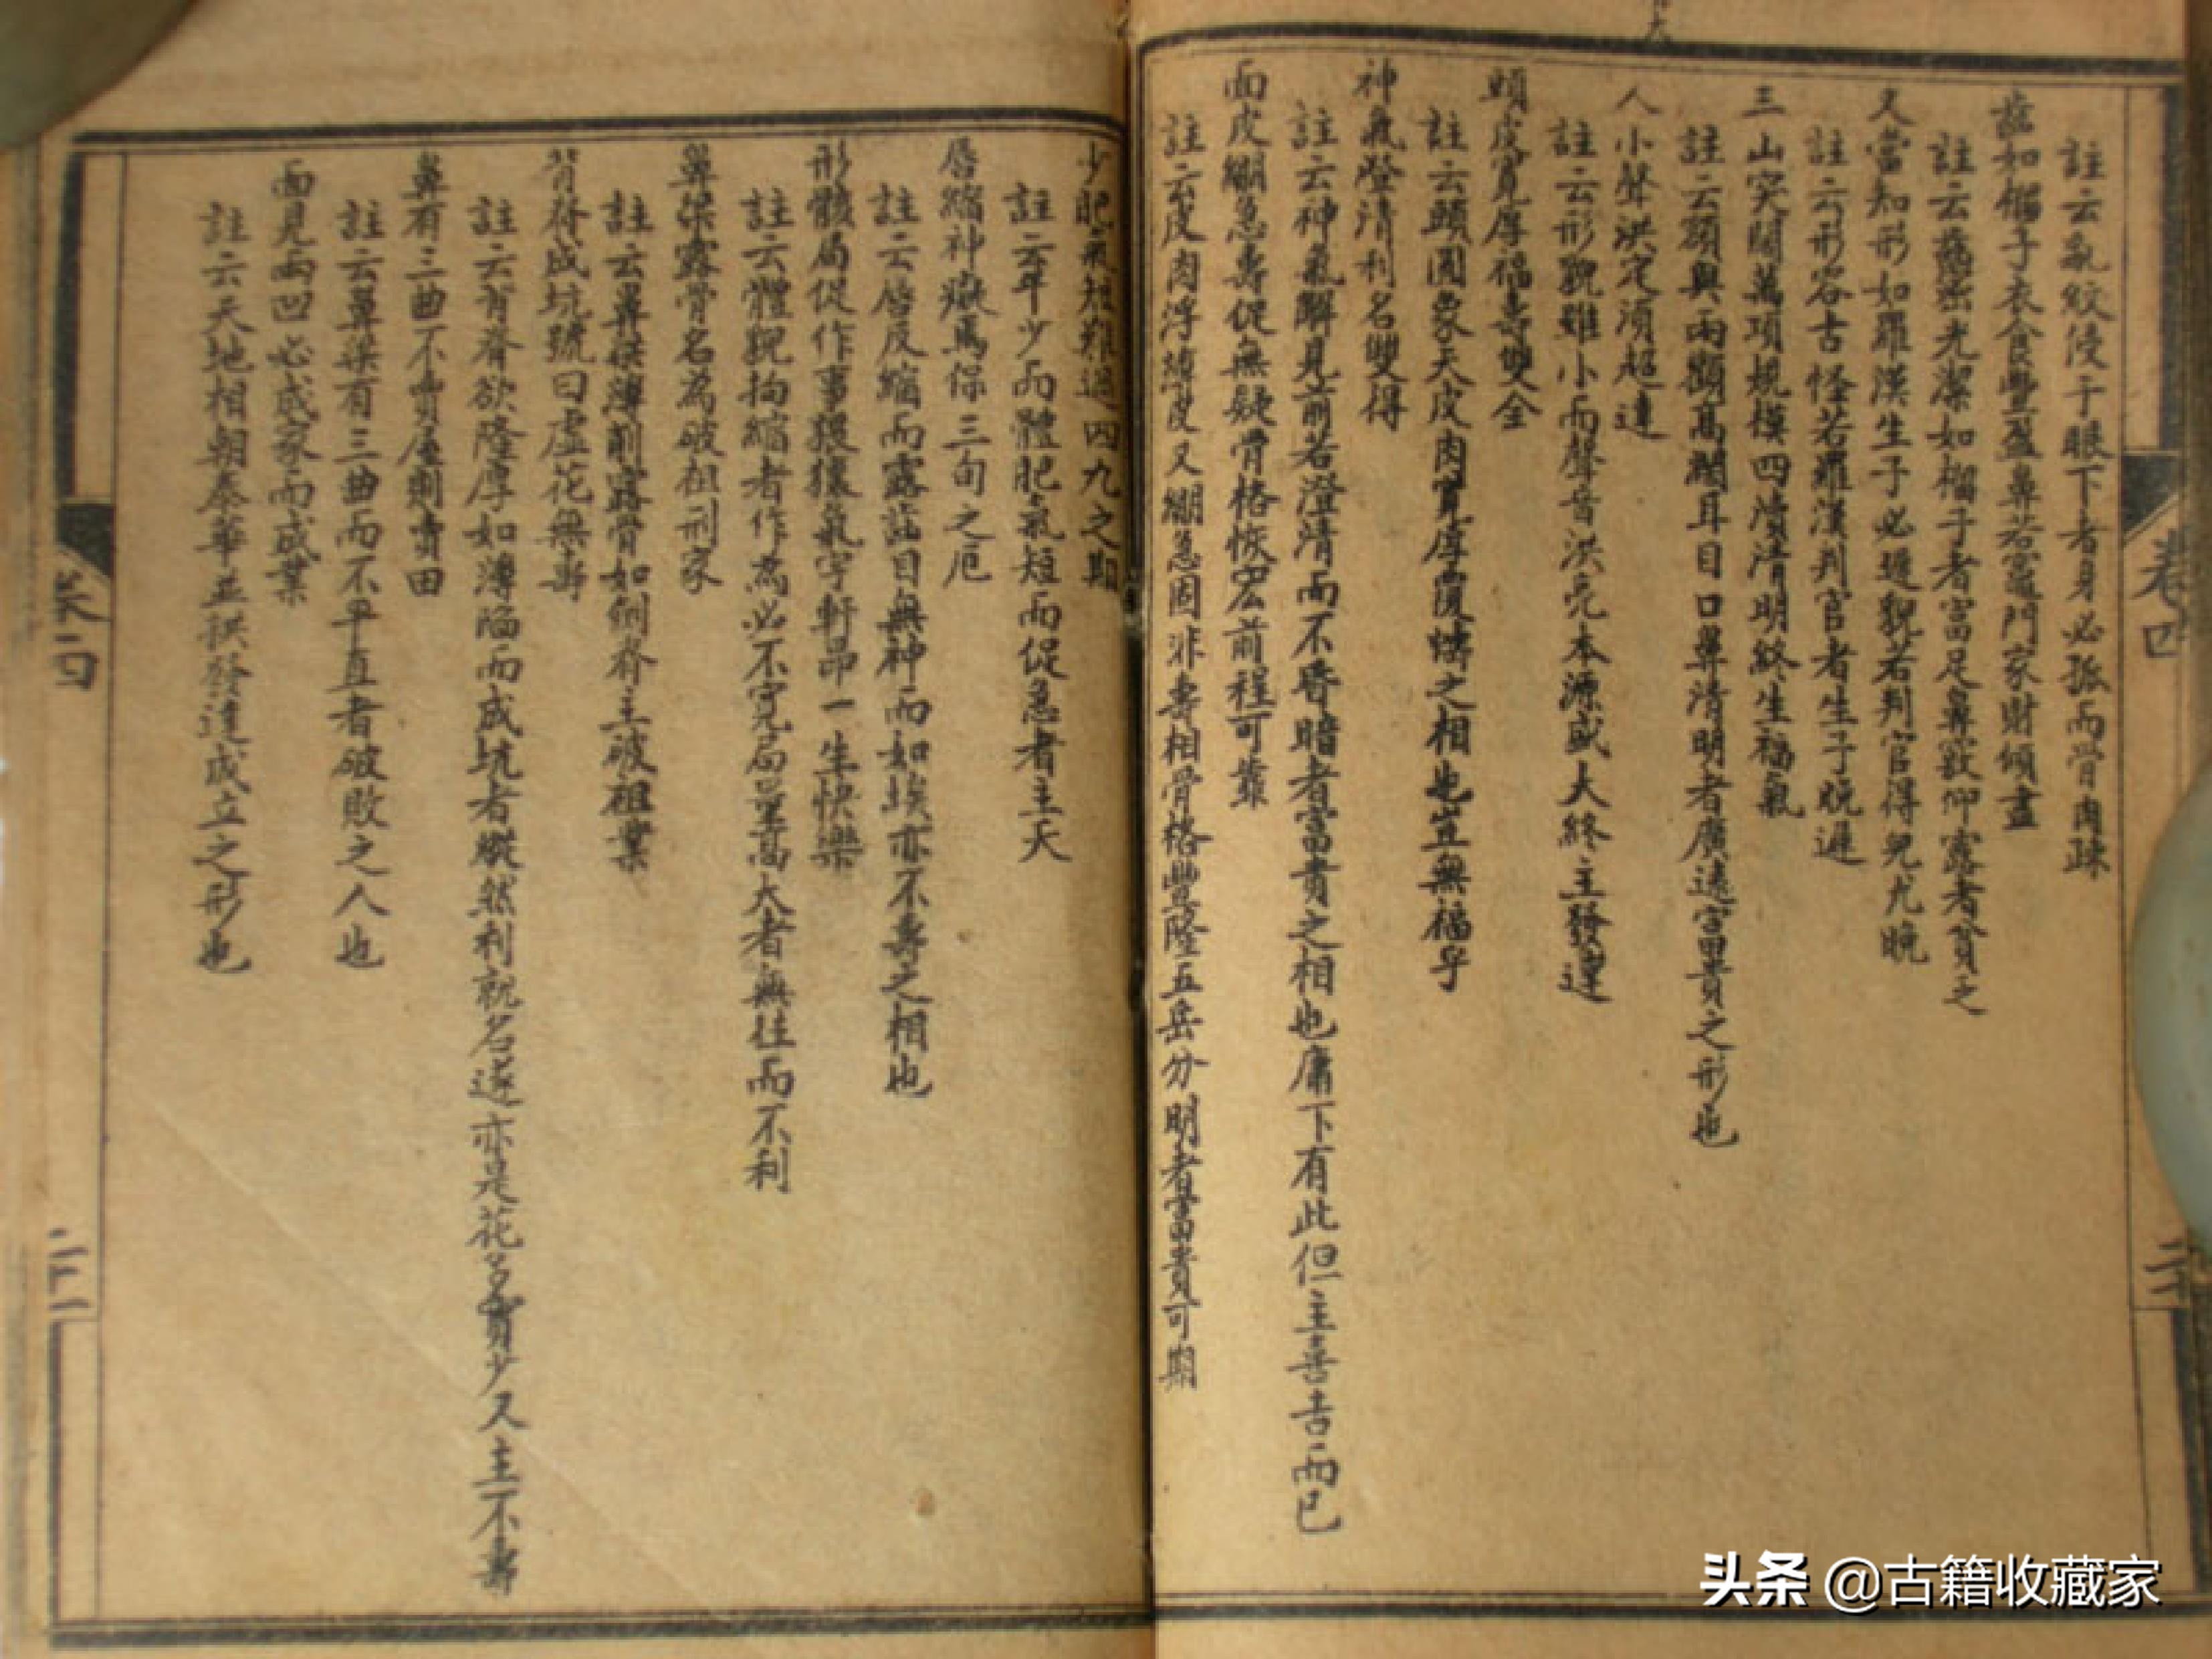 註云亂紋侵于眼下者身必孤而骨肉疎
齒如榴子衣食豐盈鼻若竈門家財傾盡
註云齒光潔如榴子者富足鼻竅仰露者貧之
又當知形如羅漢生子必遲貌若判官得兒尤晚
註云形容古怪若羅漢判官者生子晚遲
三山突闊萬頃規模四瀆清明終生福氣
註云額與兩顴高濶耳目口鼻清明者廣遠富貴之形也
人小聲洪定須超達
註云形貌雖小而聲音洪亮本源盛大終主發達
頭皮寬厚福壽雙全
註云頭圓象天皮肉寬厚覆幬之相也豈無福乎
神氣澄清利名雙得
註云神氣解見前若澄清而不昏暗者富貴之相也庸下有此但主善吉而已
面皮繃急壽促無疑骨格恢宏前程可靠
註云皮肉浮薄皮又繃急固非壽相骨格豐隆五岳分明者富貴可期
卷四
少肥氣短難過四九之期
註云年少而體肥氣短而促急者主夭
唇縮神癡焉保三旬之厄
註云唇反縮而露齒目無神而如埃亦不壽之相也
形骸局促作事猥獕氣宇軒昂一生快樂
註云體貌拘縮者作為必不寬局量高大者無往而不利
鼻梁露骨名為破祖刑家
註云鼻樑薄削露骨如側脊主破祖業
背脊成坑號曰虛花無壽
註云背脊欲隆厚如薄陷而成坑者縱然利就名遂亦是花多實少又主不壽
鼻有三曲不賣屋則賣田
註云鼻梁有三曲而不平直者破敗之人也
面見兩凹必成家而成業
註云天地相朝泰華並拱發達成立之形也
卷四
二十一
头条 @古籍收藏家